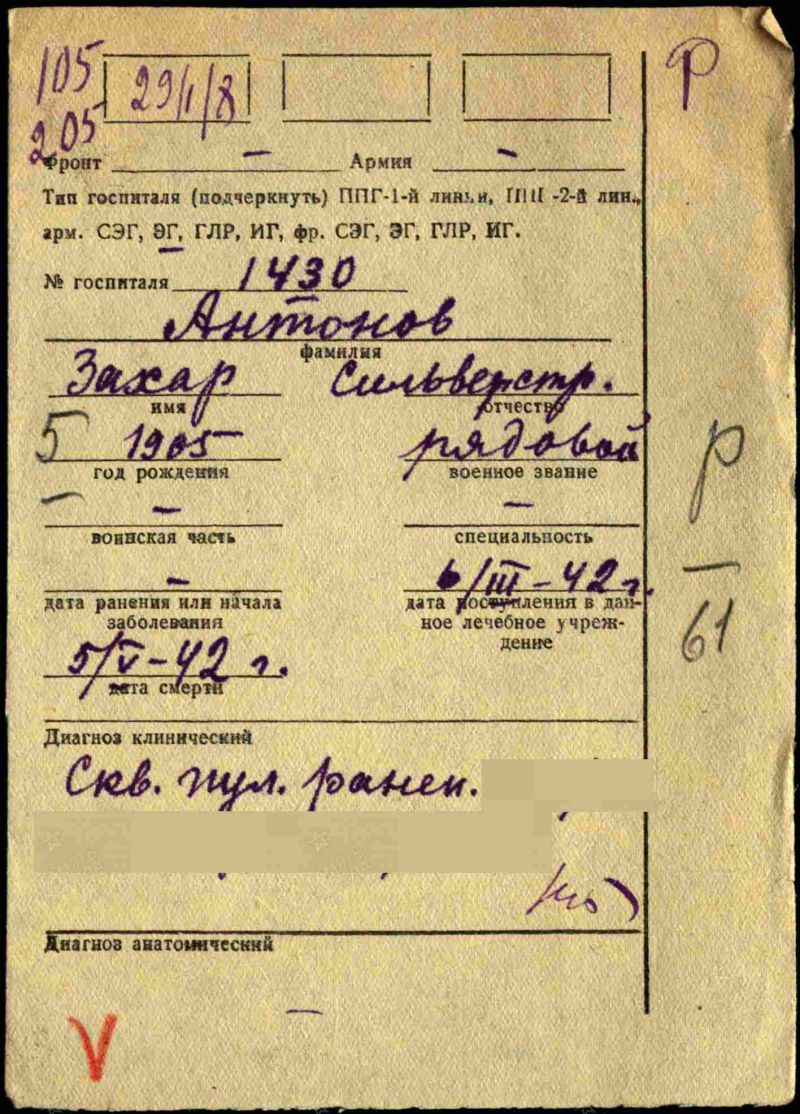 105
205
29/1/8
Р
Фронт – Армия –
Тип госпиталя (подчеркнуть) ППГ-1-й линии, ППГ-2-й лин.,
арм. СЭГ, ЭГ, ГЛР, ИГ, фр. СЭГ, ЭГ, ГЛР, ИГ.
№ госпиталя 1430
Антонов
фамилия
Захар Сильверстр.
имя отчество
5 1905 рядовой
год рождения военное звание
р
– – –
воинская часть специальность
– 6/III-42 г.
–
61
дата ранения или начала дата поступления в дан-
заболевания ное лечебное учреж-
дение
5/V-42 г.
дата смерти
Диагноз клинический
Скв. пул. ранен.
Диагноз анатомический
–
V